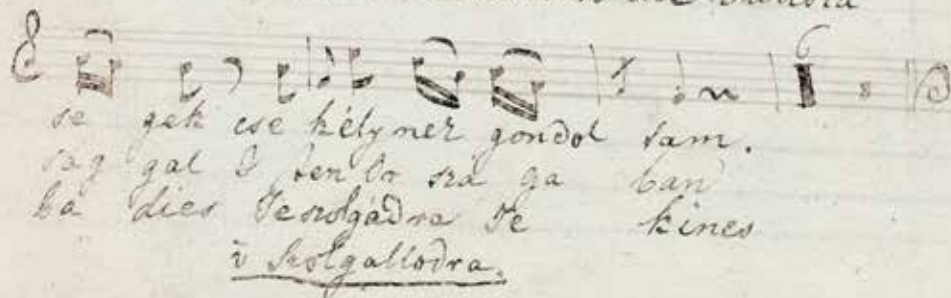 se gek cse kély nez gondol sam.
sag gal Isten Or szá ga ban
ba dies Te szolgádra Te kines
i Szolgallodra.